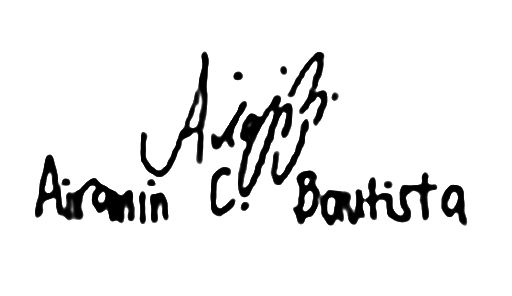 Airamin C. Bautista